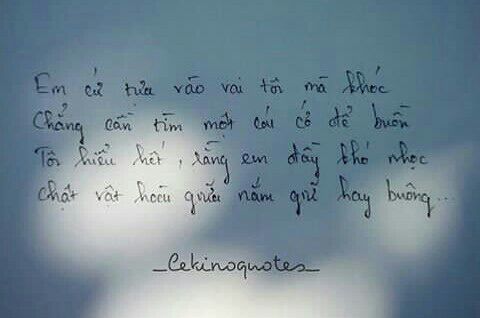 Em cứ tựa vào vai tôi mà khóc
Chẳng cần tìm một cái cớ để buồn
Tôi hiểu hết, rằng em đầy khó nhọc
Chật vật hoài giữa nắm giữ hay buông...
_Cekinoquotes_